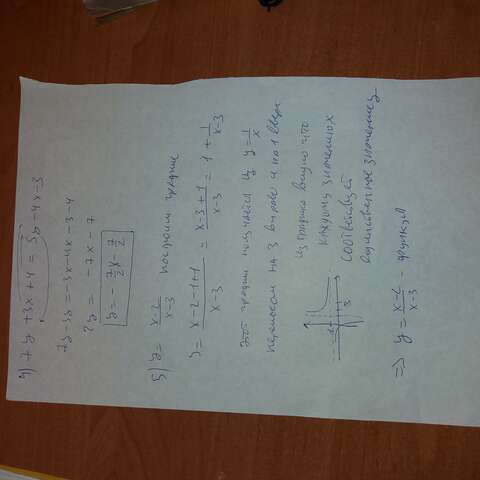 4) 7y + 3x + 4 = 5y - 4x - 3
7y - 5y = -3x - 4x - 3 - 4
2y = -7x - 7
y = -7/2 x - 7/2
5) y = (x-2)/(x-3) построим график
y = (x-2-1+1)/(x-3) = (x-3+1)/(x-3) = 1 + 1/(x-3)
Этот график получается из y = 1/x
переносом на 3 вправо и на 1 вверх
из графика видно что
каждому значению x
соответствует
единственное значение y
1
3
=> y = (x-2)/(x-3) - функция